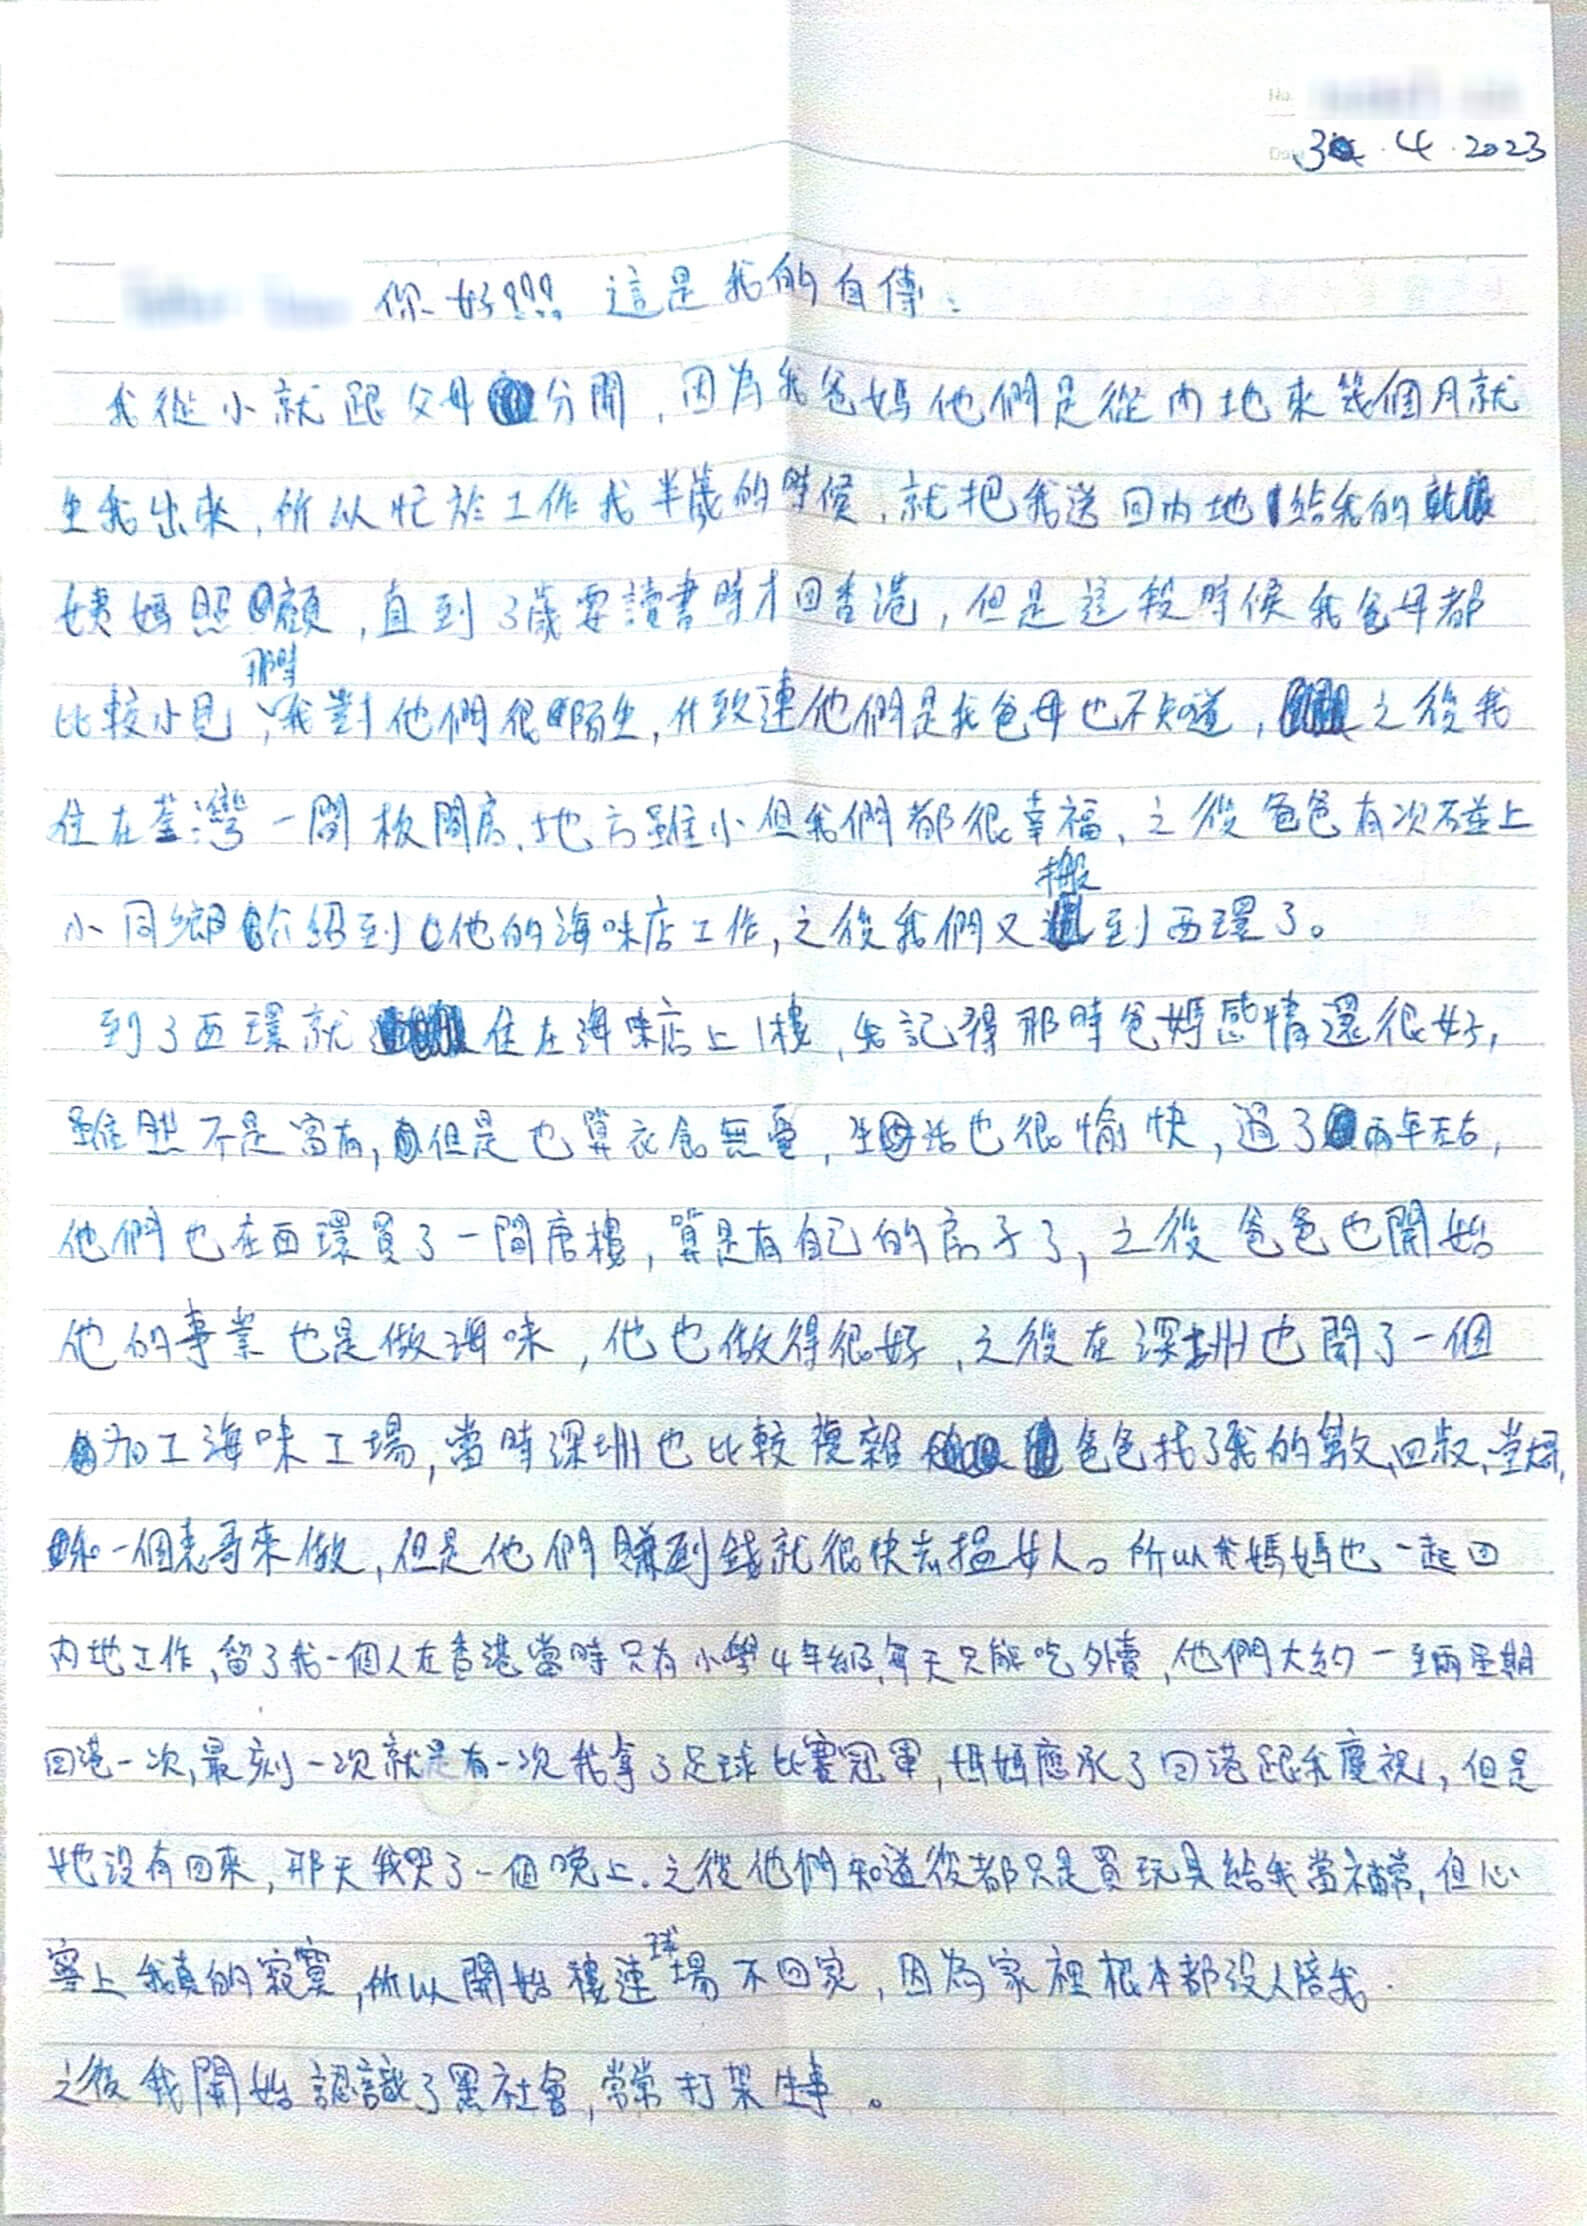 No.
3 . 4 . 2023
你好!!! 這是我的自傳:
我從小就跟父母分開，因為我爸媽他們是從內地來幾個月就
生我出來，所以忙於工作我半歲的時候，就把我送回內地給我的
姨媽照顧，直到3歲要讀書時才回香港，但是這段時候我爸母都
比較小見，那時我對他們很陌生，什致連他們是我爸母也不知道，之後我
住在荃灣一間板間房，地方雖小但我們都很幸福，之後爸爸有次碰上
小同鄉介紹到他的海味店工作，之後我們又搬到西環了。
到了西環就住在海味店上1樓，記得那時爸媽感情還很好，
雖然不是富有，但是也算衣食無憂，生活也很愉快，過了兩年左右，
他們也在西環買了一間唐樓，算是有自己的房子了，之後爸爸也開始
他的事業也是做海味，他也做得很好，之後在深圳也開了一個
加工海味工場，當時深圳也比較複雜爸爸找了我的、四叔、
和一個表哥來做，但是他們賺到錢就很快去搵女人。所以我媽媽也一起回
內地工作，留了我一個人在香港當時只有小學4年級，每天只能吃外賣，他們大約一至兩星期
回港一次，最刻一次就是有一次我拿了足球比賽冠軍，媽媽應承了回港跟我慶祝，但是
她沒有回來，那天我哭了一個晚上．之後他們知道後都只是買玩具給我當補常，但心
寧上我真的寂寞，所以開始樓連球場不回家，因為家裡根本都沒人陪我．
之後我開始認識了黑社會，常常打架生事。